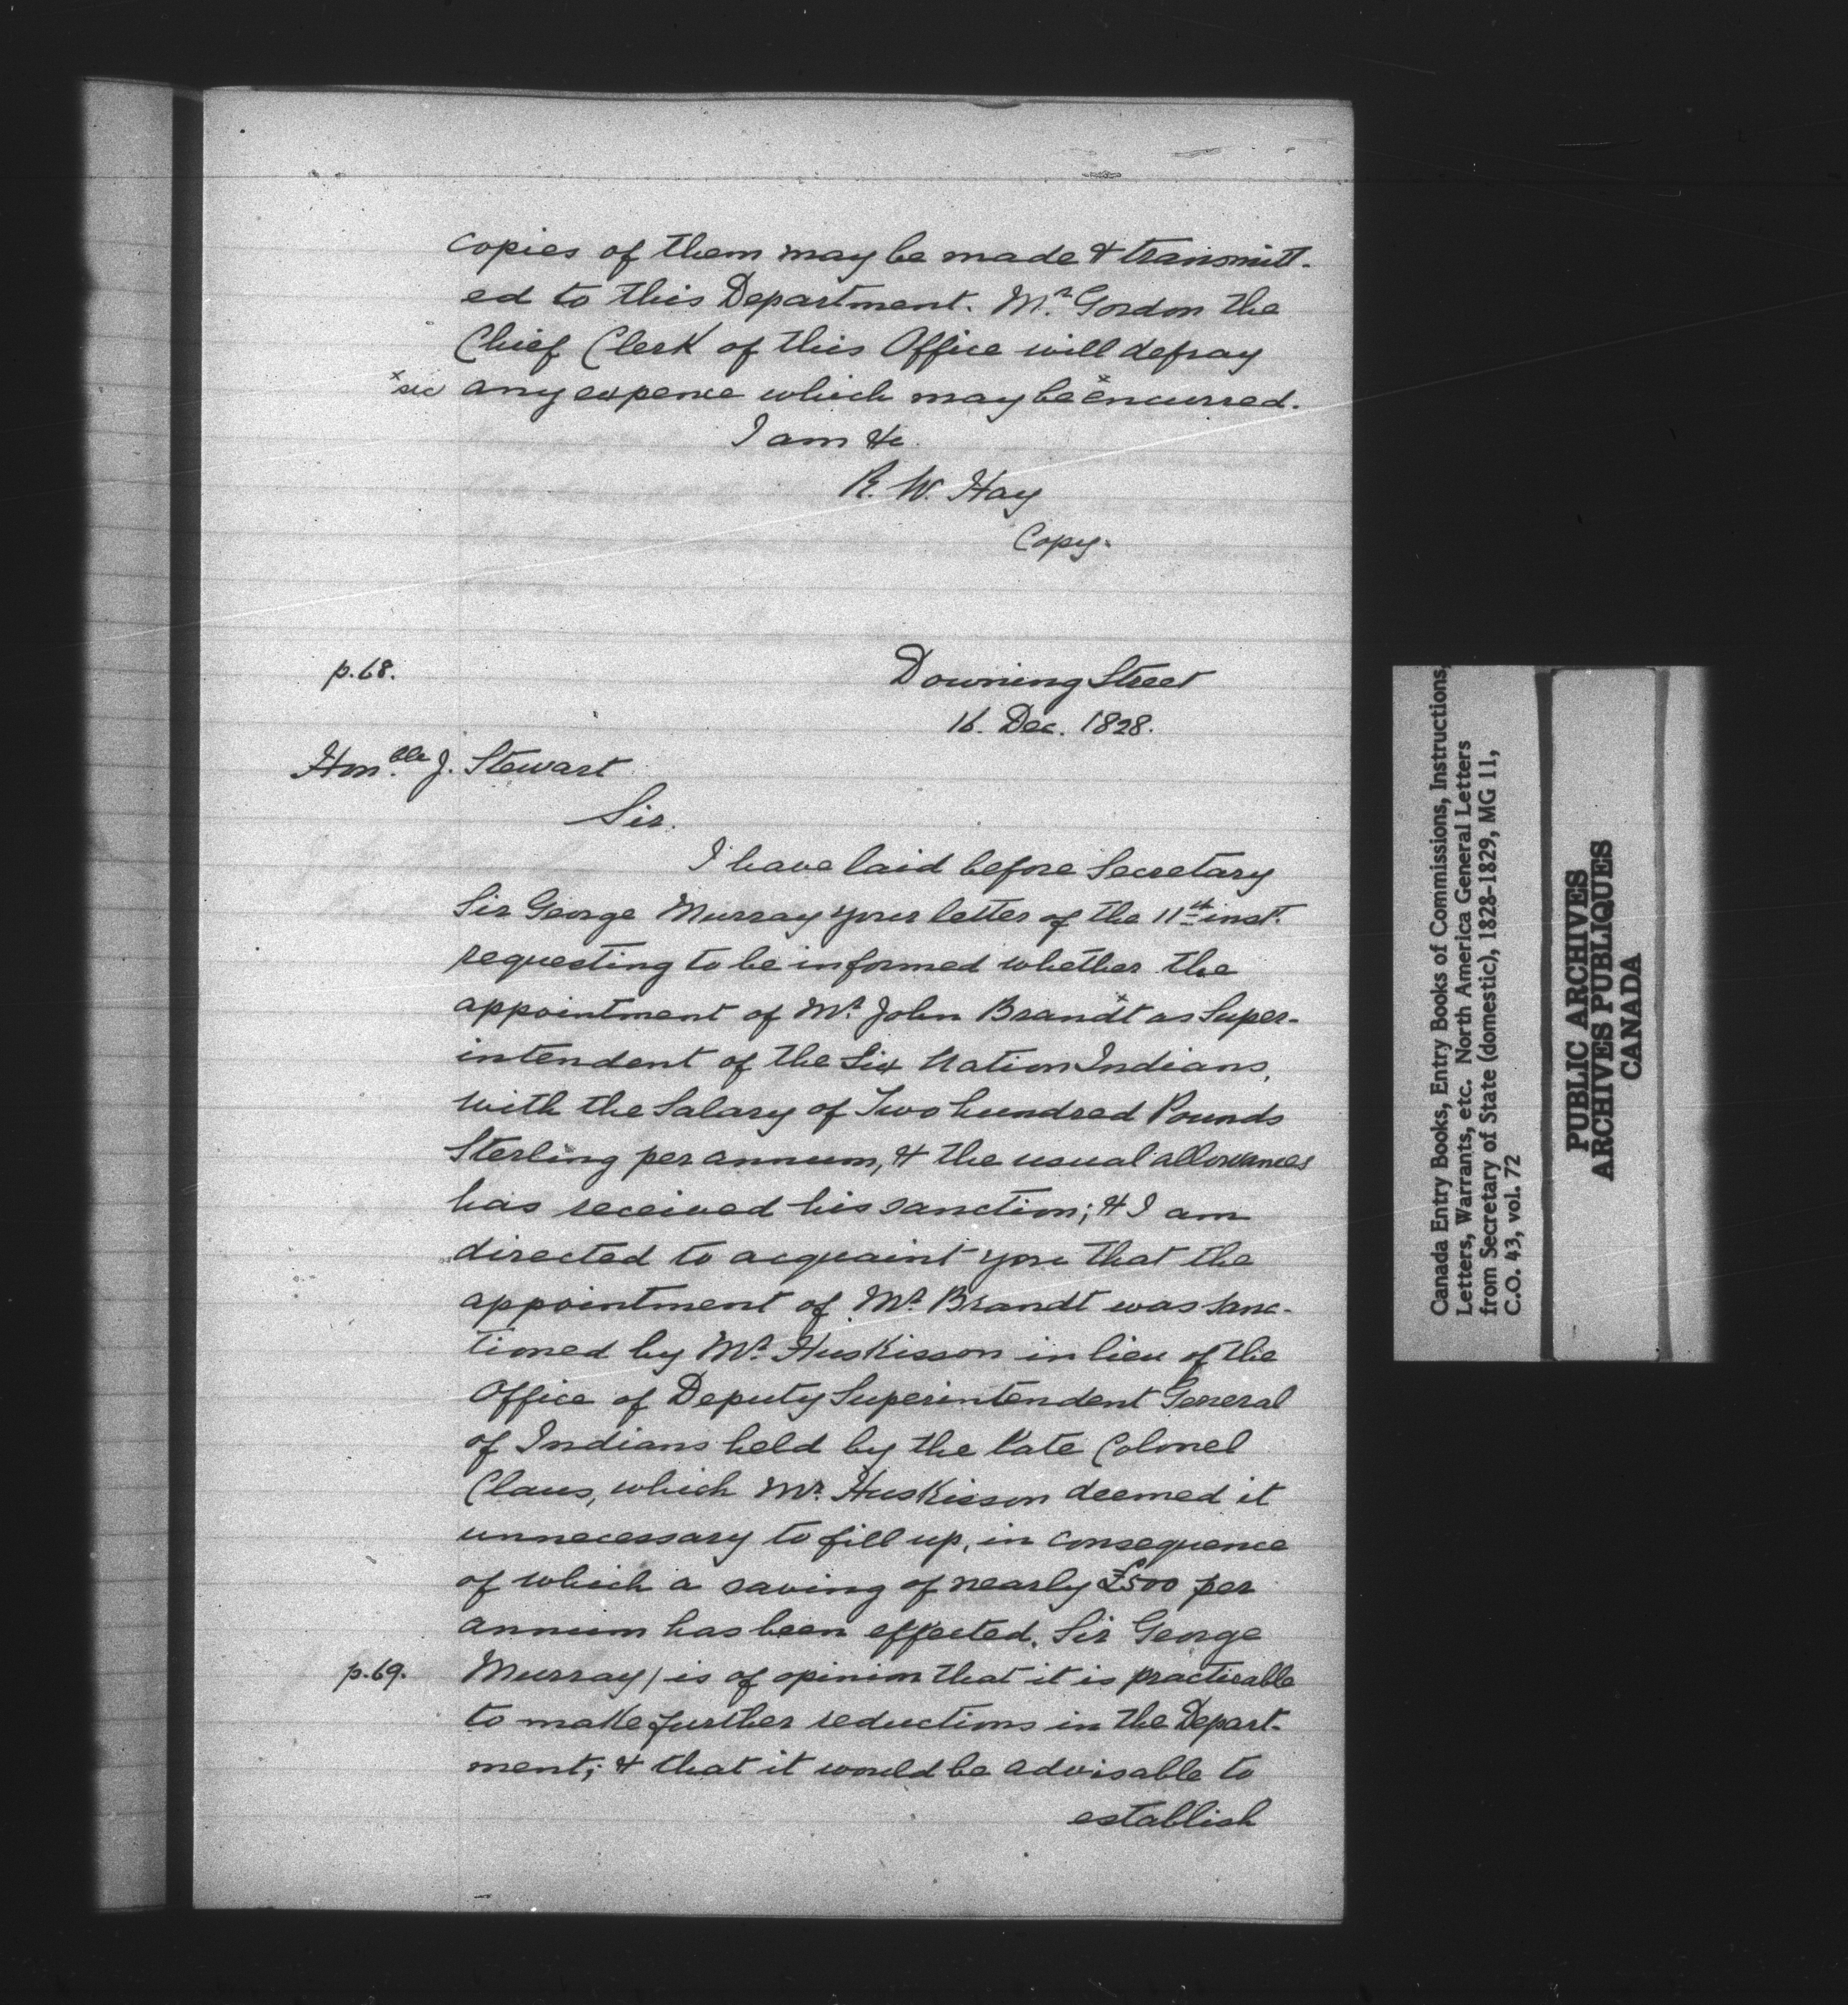 copies of them may be made & transmitt-
ed to this Department. Mr. Gordon the
Chief Clerk of this Office will defray
xsic any expence which may be xencurred.
I am &c.
R. W. Hay
Copy.
p.68.
Downing Street
16. Dec. 1828.
Honble. J. Stewart
Sir.
I have laid before Secretary
Sir George Murray your letter of the 11th inst.
requesting to be informed whether the
appointment of Mr. John Brandxt as Super-
intendent of the Six Nation Indians,
with the Salary of Two hundred Pounds
Sterling per annum, & the usual allowances
has received his sanction; & I am
directed to acquaint you that the
appointment of Mr. Brandt was sanc-
tioned by Mr. Huskisson in lieu of the
Office of Deputy Superintendent General
of Indians held by the late Colonel
Claus, which Mr. Huskisson deemed it
unnecessary to fill up, in consequence
of which a saving of nearly £500 per
annum has been effected. Sir George
p.69. Murray / is of opinion that it is practicable
to make further reductions in the Depart-
ment; & that it would be advisable to
establish
Canada Entry Books, Entry Books of Commissions, Instructions,
Letters, Warrants, etc. North America General Letters
from Secretary of State (domestic), 1828-1829, MG 11,
C.O. 43, vol. 72
PUBLIC ARCHIVES
ARCHIVES PUBLIQUES
CANADA